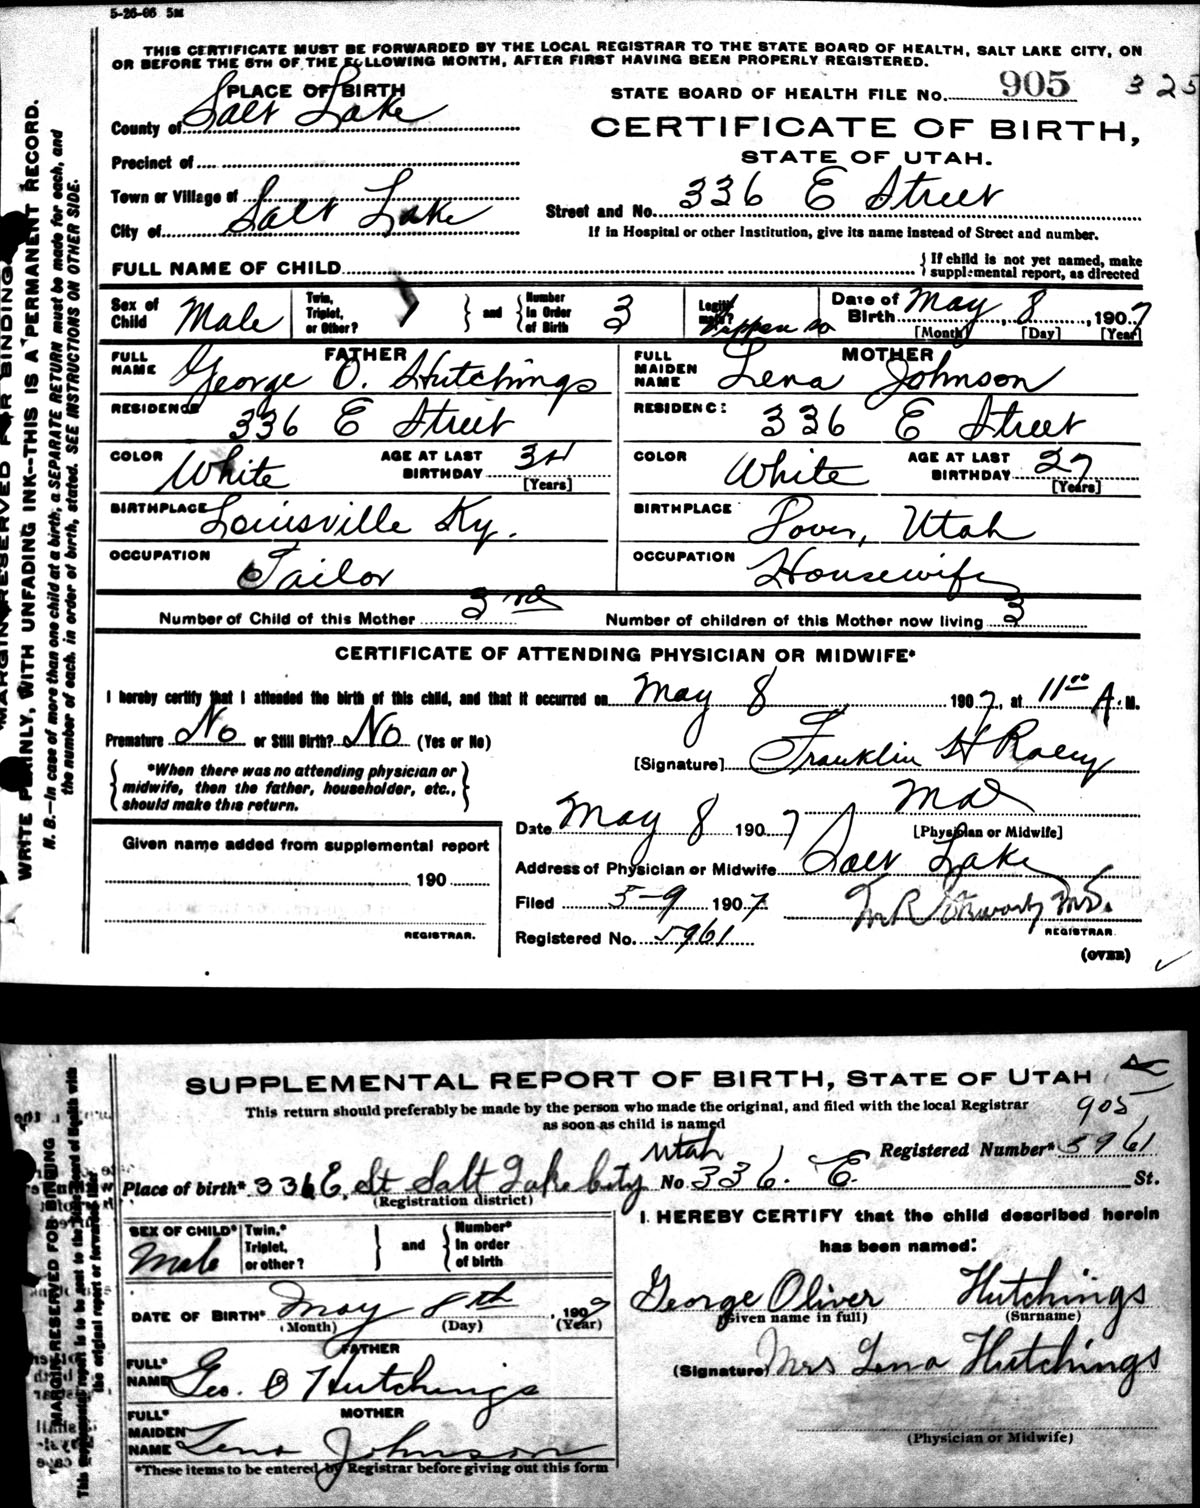 5-26-06 5M
THIS CERTIFICATE MUST BE FORWARDED BY THE LOCAL REGISTRAR TO THE STATE BOARD OF HEALTH, SALT LAKE CITY, ON
OR BEFORE THE 5TH OF THE FOLLOWING MONTH, AFTER FIRST HAVING BEEN PROPERLY REGISTERED.
PLACE OF BIRTH
STATE BOARD OF HEALTH FILE No. 905 325
County of Salt Lake
CERTIFICATE OF BIRTH,
STATE OF UTAH.
Precinct of
Town or Village of
Street and No. 336 E Street
City of Salt Lake
If in Hospital or other Institution, give its name instead of Street and number.
FULL NAME OF CHILD
{ If child is not yet named, make
supplemental report, as directed
Sex of Child Male
Twin, Triplet, or Other? 1 } and { Number In Order of Birth 3
Date of Birth May 8, 1907
[Month] [Day] [Year]
FATHER
FULL NAME George O. Hutchings
RESIDENCE 336 E Street
COLOR White
AGE AT LAST BIRTHDAY 34
[Years]
BIRTHPLACE Louisville Ky.
OCCUPATION Tailor
MOTHER
FULL MAIDEN NAME Lena Johnson
RESIDENCE 336 E Street
COLOR White
AGE AT LAST BIRTHDAY 27
[Years]
BIRTHPLACE Utah
OCCUPATION Housewife
Number of Child of this Mother 3rd
Number of children of this Mother now living 3
CERTIFICATE OF ATTENDING PHYSICIAN OR MIDWIFE*
I hereby certify that I attended the birth of this child, and that it occurred on May 8 1907, at 11 00 A. M.
Premature No or Still Birth? No (Yes or No)
[Signature] Franklin H
{ *When there was no attending physician or
midwife, then the father, householder, etc.,
should make this return. }
Date May 8 1907
[Physician or Midwife]
Address of Physician or Midwife Salt Lake
Filed 5-9 1907
Registered No. 5961
REGISTRAR
(OVER)
Given name added from supplemental report
190
REGISTRAR.
MARGIN RESERVED FOR BINDING
WRITE PLAINLY, WITH UNFADING INK--THIS IS A PERMANENT RECORD.
N. B.--In case of more than one child at a birth, a SEPARATE RETURN must be made for each, and
the number of each, in order of birth, stated. SEE INSTRUCTIONS ON OTHER SIDE.
SUPPLEMENTAL REPORT OF BIRTH, STATE OF UTAH
This return should preferably be made by the person who made the original, and filed with the local Registrar
as soon as child is named
905
Registered Number* 5961
Utah
Place of birth* 336 E, St Salt Lake City No 336. E. St.
(Registration district)
SEX OF CHILD* Male
Twin,* Triplet, or other? } and { Number* In order of birth
DATE OF BIRTH* May 8th, 1907
(Month) (Day) (Year)
FATHER
FULL* NAME Geo. O Hutchings
MOTHER
FULL* MAIDEN NAME Lena Johnson
*These items to be entered by Registrar before giving out this form
I HEREBY CERTIFY that the child described herein
has been named:
George Oliver Hutchings
(Given name in full) (Surname)
(Signature) Mrs Lena Hutchings
(Physician or Midwife)
MARGIN RESERVED FOR BINDING